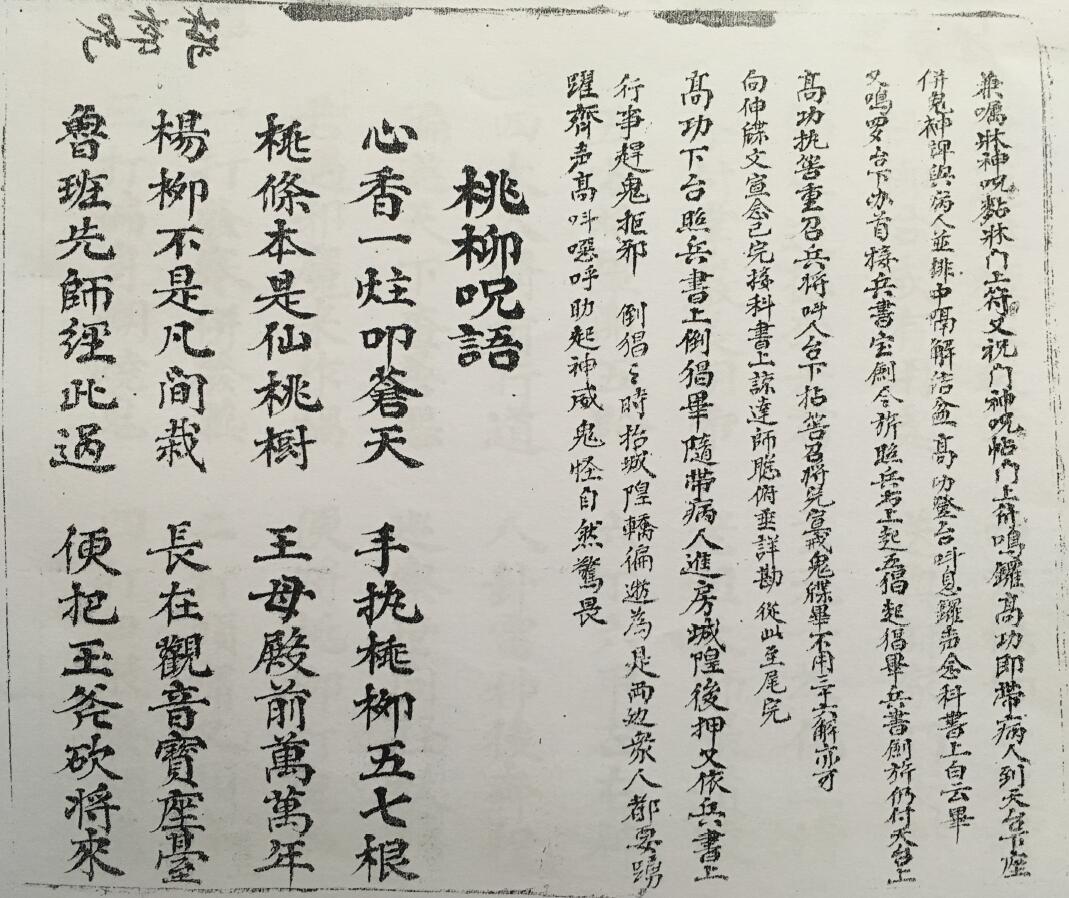 兼囑牀神呪黏牀門上符又祝門神呪帖門上符鳴鑼高功即帶病人到天台下座
併鬼神牌與病人並排中隔解结盆高功登台叫息鑼声念科書上白云畢
又鳴罗台下办首接兵書宝劍令旂照兵书上起五猖起猖畢兵書劍旂仍付天台上
高功执筶重召兵将叫人台下拈筶召將完宣戒鬼牒畢不用三十六解亦可
向伸牒文宣念已完接科書上諒達師聡俯垂詳勘從此至尾完
高功下台照兵書上倒猖畢隨带病人進房城隍後押又依兵書上
行事趕鬼拒邪 倒猖々時抬城隍轎徧遊為是两边衆人都要踴
躍齊声高叫噁呼助起神威鬼怪自然驚畏
桃柳呪語
心香一炷叩蒼天 手执桃柳五七根
桃條本是仙桃樹 王母殿前萬萬年
楊柳不是凡间栽 長在觀音寶座臺
魯班先師經此過 便把玉斧砍将來
桃柳呪